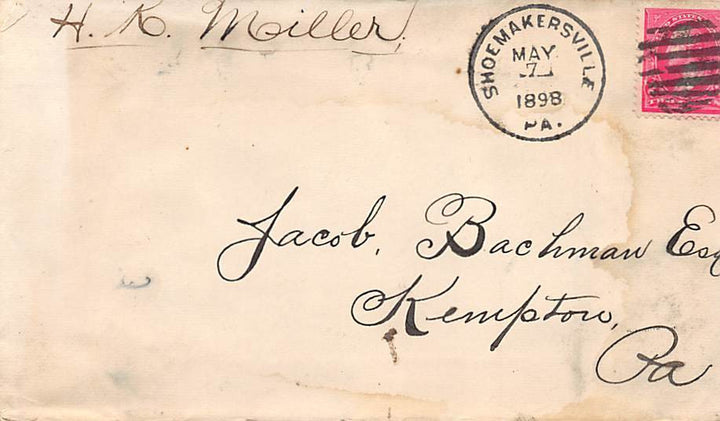 H. K. Miller.
SHOEMAKERSVILLE
MAY
7
1898
PA.
Jacob, Bachman Esq
Kempton,
Pa